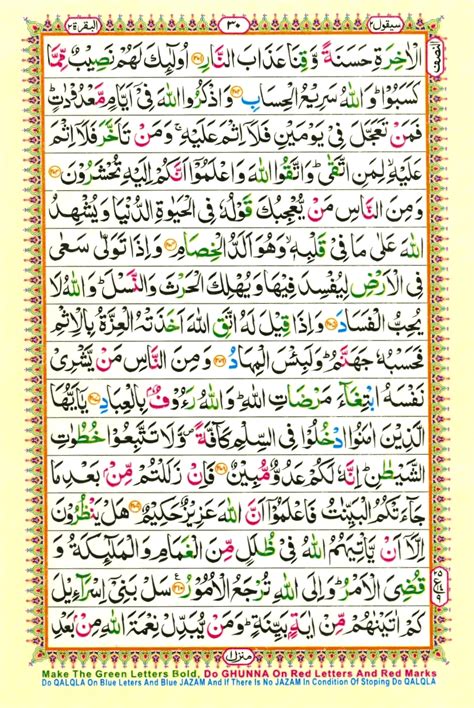 سيقول ٢ ٣٠ البقرة ٢
الْاٰخِرَةِ حَسَنَةً وَّقِنَا عَذَابَ النَّارِ ﴿٢٠١﴾ اُولٰٓئِكَ لَهُمْ نَصِيْبٌ مِّمَّا
كَسَبُوْا ؕ وَاللّٰهُ سَرِيْعُ الْحِسَابِ ﴿٢٠٢﴾ وَاذْكُرُوا اللّٰهَ فِىْٓ اَيَّامٍ مَّعْدُوْدٰتٍ ؕ
فَمَنْ تَعَجَّلَ فِىْ يَوْمَيْنِ فَلَاۤ اِثْمَ عَلَيْهِ ۚ وَمَنْ تَاَخَّرَ فَلَاۤ اِثْمَ
عَلَيْهِ ۙ لِمَنِ اتَّقٰى ؕ وَاتَّقُوا اللّٰهَ وَاعْلَمُوْٓا اَنَّكُمْ اِلَيْهِ تُحْشَرُوْنَ ﴿٢٠٣﴾
وَمِنَ النَّاسِ مَنْ يُّعْجِبُكَ قَوْلُهٗ فِى الْحَيٰوةِ الدُّنْيَا وَيُشْهِدُ
اللّٰهَ عَلٰى مَا فِىْ قَلْبِهٖ ۙ وَهُوَ اَلَدُّ الْخِصَامِ ﴿٢٠٤﴾ وَاِذَا تَوَلّٰى سَعٰى
فِى الْاَرْضِ لِيُفْسِدَ فِيْهَا وَيُهْلِكَ الْحَرْثَ وَالنَّسْلَ ؕ وَاللّٰهُ لَا
يُحِبُّ الْفَسَادَ ﴿٢٠٥﴾ وَاِذَا قِيْلَ لَهُ اتَّقِ اللّٰهَ اَخَذَتْهُ الْعِزَّةُ بِالْاِثْمِ
فَحَسْبُهٗ جَهَنَّمُ ؕ وَلَبِئْسَ الْمِهَادُ ﴿٢٠٦﴾ وَمِنَ النَّاسِ مَنْ يَّشْرِىْ
نَفْسَهُ ابْتِغَآءَ مَرْضَاتِ اللّٰهِ ؕ وَاللّٰهُ رَءُوْفٌۢ بِالْعِبَادِ ﴿٢٠٧﴾ يٰۤاَيُّهَا
الَّذِيْنَ اٰمَنُوا ادْخُلُوْا فِى السِّلْمِ كَآفَّةً ۪ وَّلَا تَتَّبِعُوْا خُطُوٰتِ
الشَّيْطٰنِ ؕ اِنَّهٗ لَكُمْ عَدُوٌّ مُّبِيْنٌ ﴿٢٠٨﴾ فَاِنْ زَلَلْتُمْ مِّنْۢ بَعْدِ مَا
جَآءَتْكُمُ الْبَيِّنٰتُ فَاعْلَمُوْٓا اَنَّ اللّٰهَ عَزِيْزٌ حَكِيْمٌ ﴿٢٠٩﴾ هَلْ يَنْظُرُوْنَ
اِلَّاۤ اَنْ يَّاْتِيَهُمُ اللّٰهُ فِىْ ظُلَلٍ مِّنَ الْغَمَامِ وَالْمَلٰٓئِكَةُ وَ
قُضِىَ الْاَمْرُ ؕ وَاِلَى اللّٰهِ تُرْجَعُ الْاُمُوْرُ ﴿٢١٠﴾ سَلْ بَنِىْٓ اِسْرَآءِيْلَ
كَمْ اٰتَيْنٰهُمْ مِّنْ اٰيَةٍۭ بَيِّنَةٍ ؕ وَمَنْ يُّبَدِّلْ نِعْمَةَ اللّٰهِ مِنْۢ بَعْدِ
منزل ١
Make The Green Letters Bold, Do GHUNNA On Red Letters And Red Marks
Do QALQLA On Blue Leters And Blue JAZAM And If There Is No JAZAM In Condition Of Stoping Do QALQLA